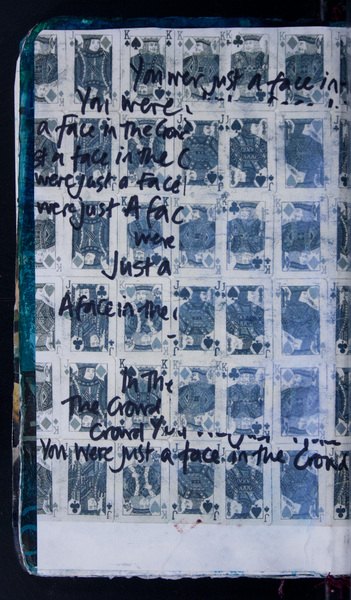 You were just a face in
You were
a face in the Cro
st a face in the C
were just a Face
were just A fac
were
Just a
A face in the
In The
The Crowd
Crowd You
You were just a face in the Crowd